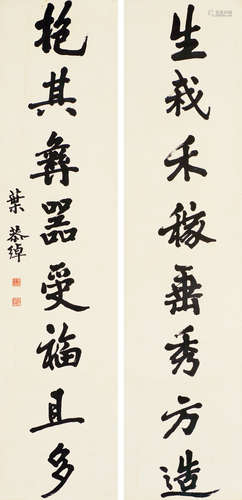 生我禾稼垂秀方造
抱其彝器受福且多
葉恭綽